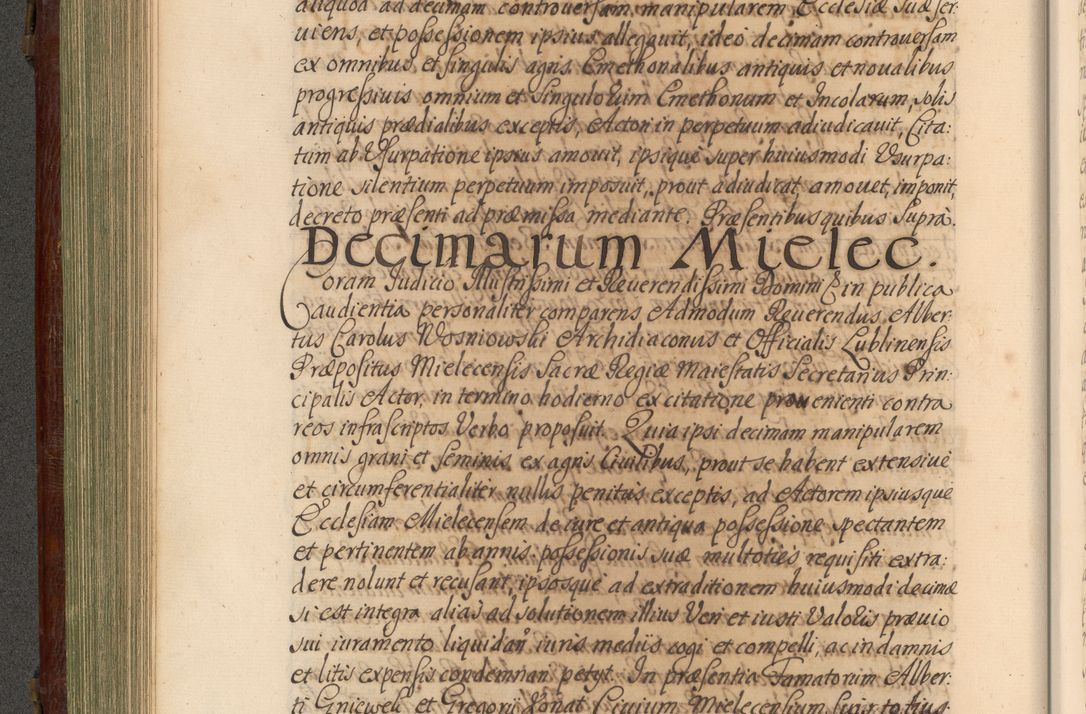 aliquod ad decimam controversam, manipularem Ecclesiæ suæ ser-
viens, et possessionem ipsius allegavit, ideo decimam controversam
ex omnibus, et singulis agris, Cmethonalibus antiquis et novalibus
progressivis omnium et singulorum Cmethonum et Incolarum, solis
antiquis prædialibus exceptis, Actori in perpetuum adiudicavit, Cita:
tum ab Usurpatione ipsius amovit, ipsique super huiusmodi Usurpa:
tione silentium perpetuum imposuit, prout adiudicat, amovet, imponit,
decreto præsenti ad præmissa mediante. Præsentibus quibus supra.
Decimarum Mielec.
Coram Iudicio Illustrissimi et Reverendissimi Domini E in publica
audientia personaliter comparens Admodum Reverendus Alber:
tus Carolus Wosniowski Archidiaconus et Officialis Lublinensis
Præpositus Mielecensis Sacræ Regiæ Maiestatis Secretarius Prin:
cipalis Actor, in termino hodierno ex citatione provenienti contra
reos infrascriptos Verbo proposuit. Quia ipsi decimam manipularem
omnis grani et seminis ex agris Civilibus, prout se habent extensive
et circumferentialiter nullis penitus exceptis, ad Actorem ipsiusque
Ecclesiam Mielecensem de iure et antiqua possessione spectantem
et pertinentem ab annis possessionis suæ multoties requisiti extra:
dere nolunt et recusant, ipsosque ad extraditionem huiusmodi decimæ
si est integra alias ad solutionem illius Veri et iusti Valoris prævio
sui iuramento liquidan iuris mediis cogi et compelli, ac in damnis
et litis expensis condemnari petijt. In præsentia Famatorum Alber:
ti Gniewek et Gregorij Civium Mielecensium,